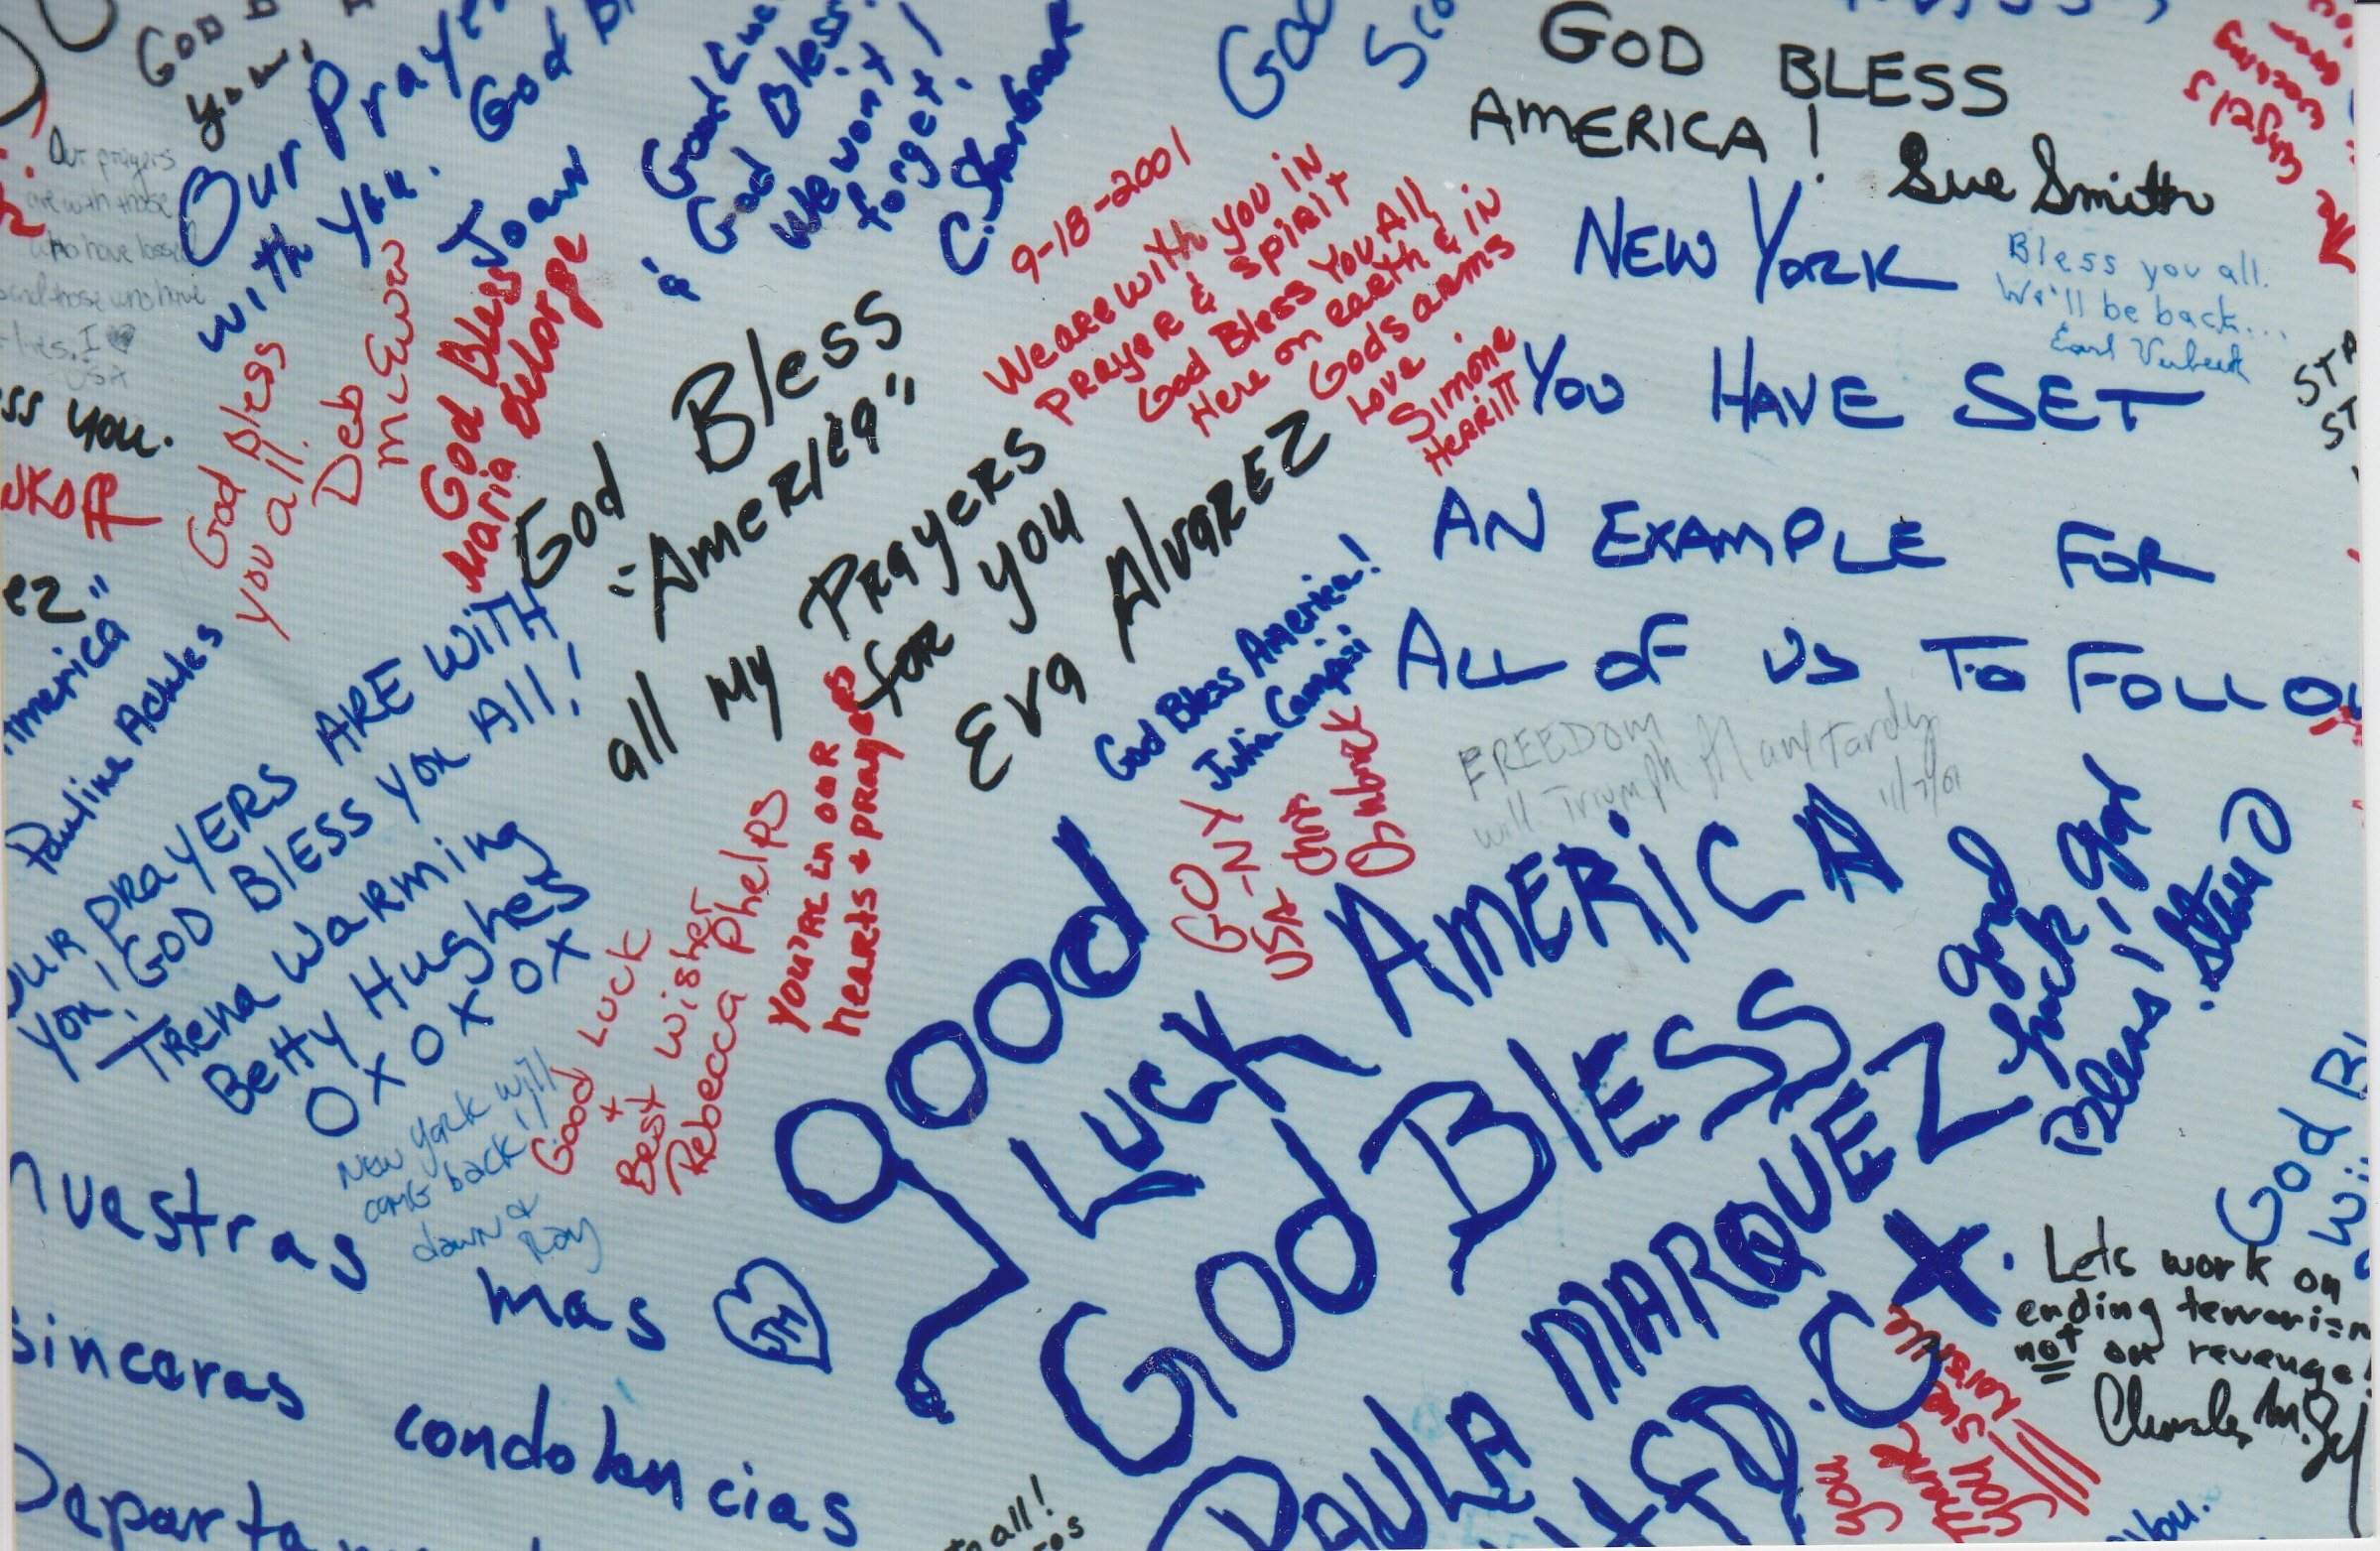 GOD B
you!
Our Praye
with you. God B
Joan
Good Luc
& God Bless.
We won't
forget!
C. Sharbaar
GOD
GOD BLESS
AMERICA!
Sue Smith
Our prayers
are with those
who have losse
and those who have
lives. I ♥
USA
ss you.
God Bless
you all.
Deb
McEwen
God Bless
Maria Delorge
9-18-2001
We are with you in
Prayer & Spirit
God Bless You All
Here on earth & in
Gods arms
Love
Simone
Herritt
NEW YORK
YOU HAVE SET
AN EXAMPLE FOR
ALL OF US TO FOLLO
Bless you all.
We'll be back...
Earl
God Bless
"America"
all my Prayers
for you
Eva Alvarez
ez"
America
Pauline Achtes
OUR PRAYERS ARE WITH
YOU! GOD BLESS YOU All!
Trena Warming
Betty Hughes
OXOXOX
New York will
come back!!
dawn &
Ray
Good Luck
+
Best Wishes
Rebecca Phelps
You're in our
hearts & prayers
God Bless America!
Julia Campisi
GO NY
USA
FREEDOM
will Triumph Mary Tardy
11/7/01
good
LUCK AMERICA
GOD BLESS
PAULA MARQUEZ
H.F.D. CX.
good
luck god
Bless!!
God Bl
nuestras mas
JM
sinceras condolencias
Departa
to all!
Lets work on
ending terrorism
not on revenge!
Charles M.
Thank
you
you.